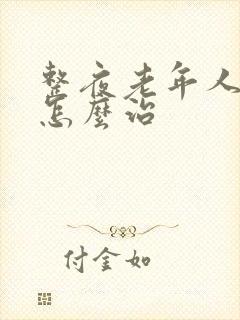 整夜老年人
怎麼治
付金如